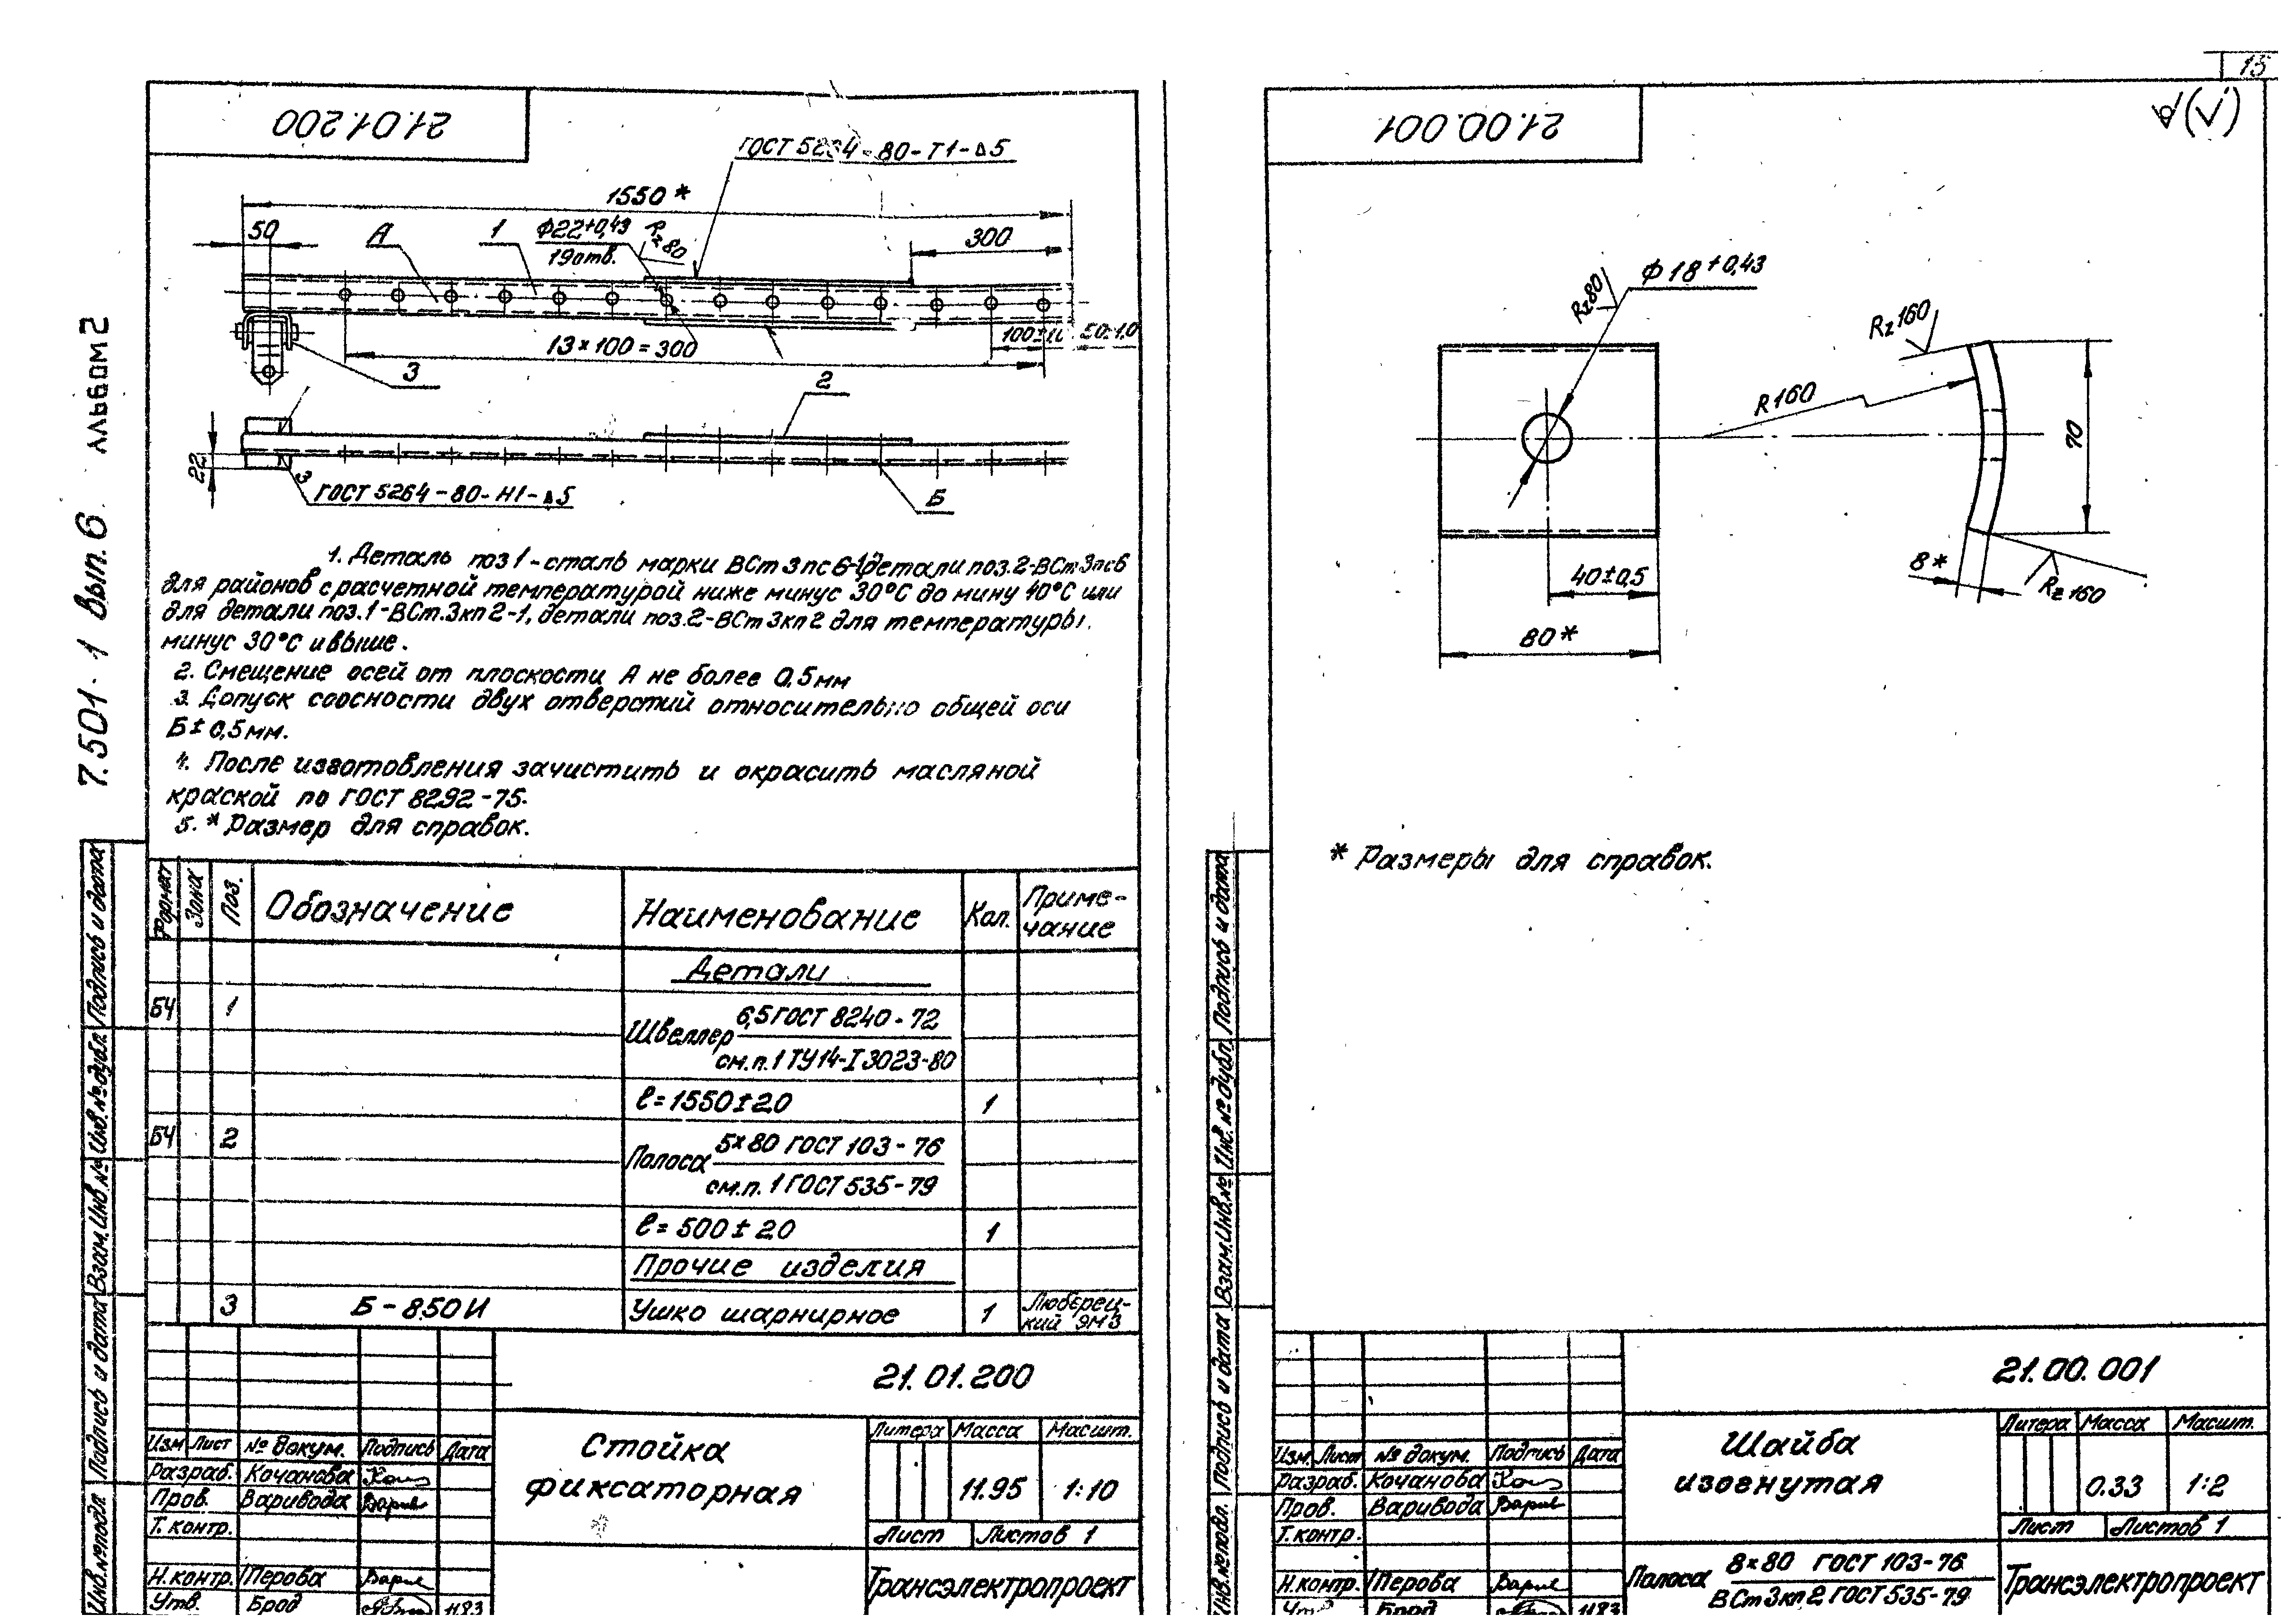 15
7.501-1 вып.6 альбом 2
21.01.200
ГОСТ 5264-80-Т1-⊿5
1550*
50
А
1
Ф22+0,43
19отв.
Rz80
300
13×100=300
3
2
22
3
ГОСТ 5264-80-Н1-⊿5
Б
1. Деталь поз 1-сталь марки ВСт3пс6-1, детали поз.2-ВСт3пс6
для районов с расчетной температурой ниже минус 30°С до мину 40°С или
для детали поз.1-ВСт.3кп2-1, детали поз.2-ВСт3кп2 для температуры
минус 30°С и выше.
2. Смещение осей от плоскости А не более 0,5мм
3. Допуск соосности двух отверстий относительно общей оси
Б±0,5мм.
4. После изготовления зачистить и окрасить масляной
краской по ГОСТ 8292-75.
5. * Размер для справок.
Формат Зона Поз. Обозначение Наименование Кол. Приме-
чание
Детали
БЧ 1 Швеллер 6,5 ГОСТ 8240-72
см.п.1 ТУ14-I 3023-80
ℓ=1550±2.0 1
БЧ 2 Полоса 5×80 ГОСТ 103-76
см.п.1 ГОСТ 535-79
ℓ=500±2.0 1
Прочие изделия
3 Б-850И Ушко шарнирное 1 Люберец-
кий ЭМЗ
21.01.200
Стойка
фиксаторная
Литера Масса Масшт.
11.95 1:10
Лист Листов 1
Трансэлектропроект
Изм Лист № докум. Подпись Дата
Разраб. Кочанова
Пров. Варивода
Т. контр.
Н.контр. Перова
Утв. Брод 11.83
Подпись и дата
Инв.№ дубл.
Взам.Инв.№
Подпись и дата
Инв.№ подл
21.00.001
Ф18+0,43
Rz80
Rz160
R160
70
8*
Rz160
40±0,5
80*
* Размеры для справок.
21.00.001
Шайба
изогнутая
Литера Масса Масшт.
0.33 1:2
Лист Листов 1
Полоса 8×80 ГОСТ 103-76
ВСт3кп2 ГОСТ 535-79
Трансэлектропроект
Изм. Лист № докум. Подпись Дата
Разраб. Кочанова
Пров. Варивода
Т.контр.
Н.контр. Перова
Брод 11.83
Подпись и дата
Инв.№ дубл.
Взам.Инв.№
Подпись и дата
Инв.№ подл.